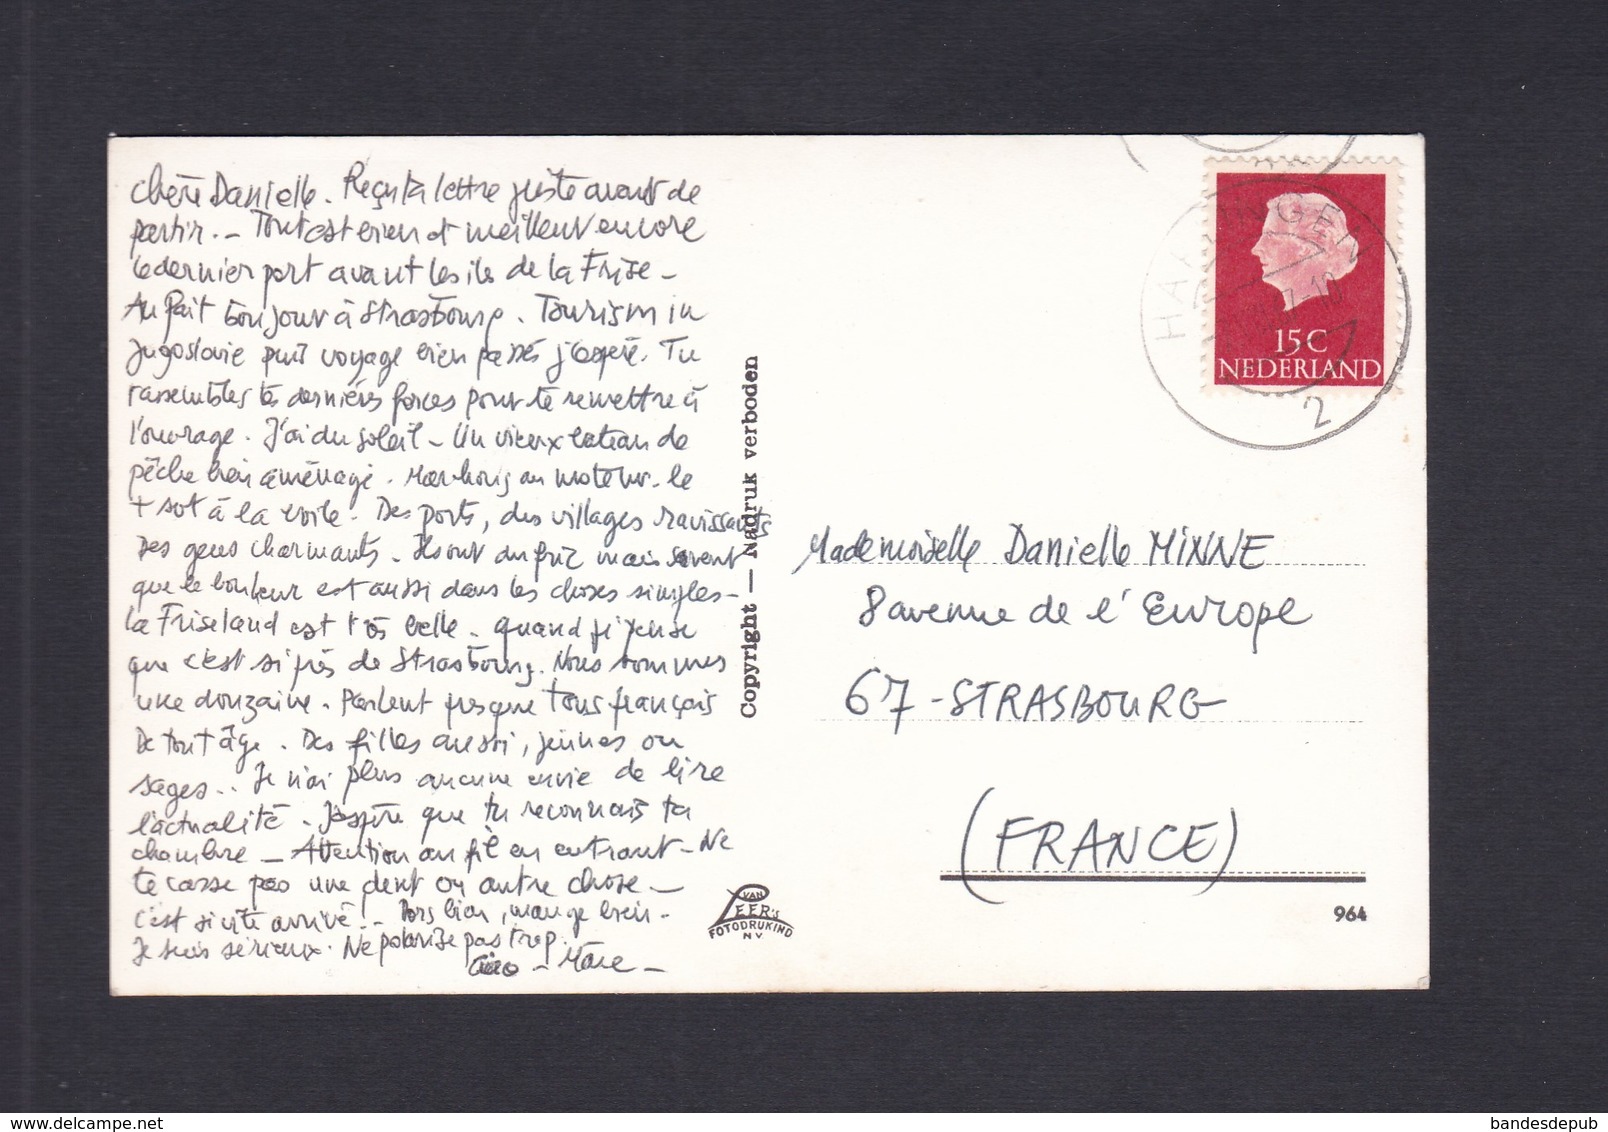 Chère Danielle. Reçu ta lettre juste avant de
partir. - Tout est bien et meilleur encore
le dernier port avant les iles de la Frise -
Au fait bonjour à Strasbourg. Tourism in
Jugoslavie puis voyage bien passés j'espère. Tu
rassembles tes dernières forces pour te remettre à
l'ouvrage. J'ai du soleil - Un vieux bateau de
pêche bien aménagé. Marchons au moteur. le
+ sot à la voile. Des ports, des villages ravissants
Des gens charmants. Ils ont du fric mais savent
que le bonheur est aussi dans les choses simples -
la Friseland est très belle. quand je pense
que c'est si près de Strasbourg. Nous sommes
une douzaine. Parlent presque tous français
De tout âge. Des filles aussi, jeunes ou
sages.. Je n'ai plus aucune envie de lire
l'actualité. J'espère que tu reconnais ta
chambre - Attention au fil en entrant - Ne
te casse pas une dent ou autre chose -
c'est si vite arrivé! - Dors bien, mange bien -
Je suis sérieux. Ne polarise pas trop.
Ciao - Marc -
Copyright — Nadruk verboden
VAN
LEER's
FOTODRUKIND
N.V.
HARLINGEN
2
15C
NEDERLAND
Mademoiselle Danielle MINNE
8 avenue de l'Europe
67 - STRASBOURG
(FRANCE)
964
bandesdepub